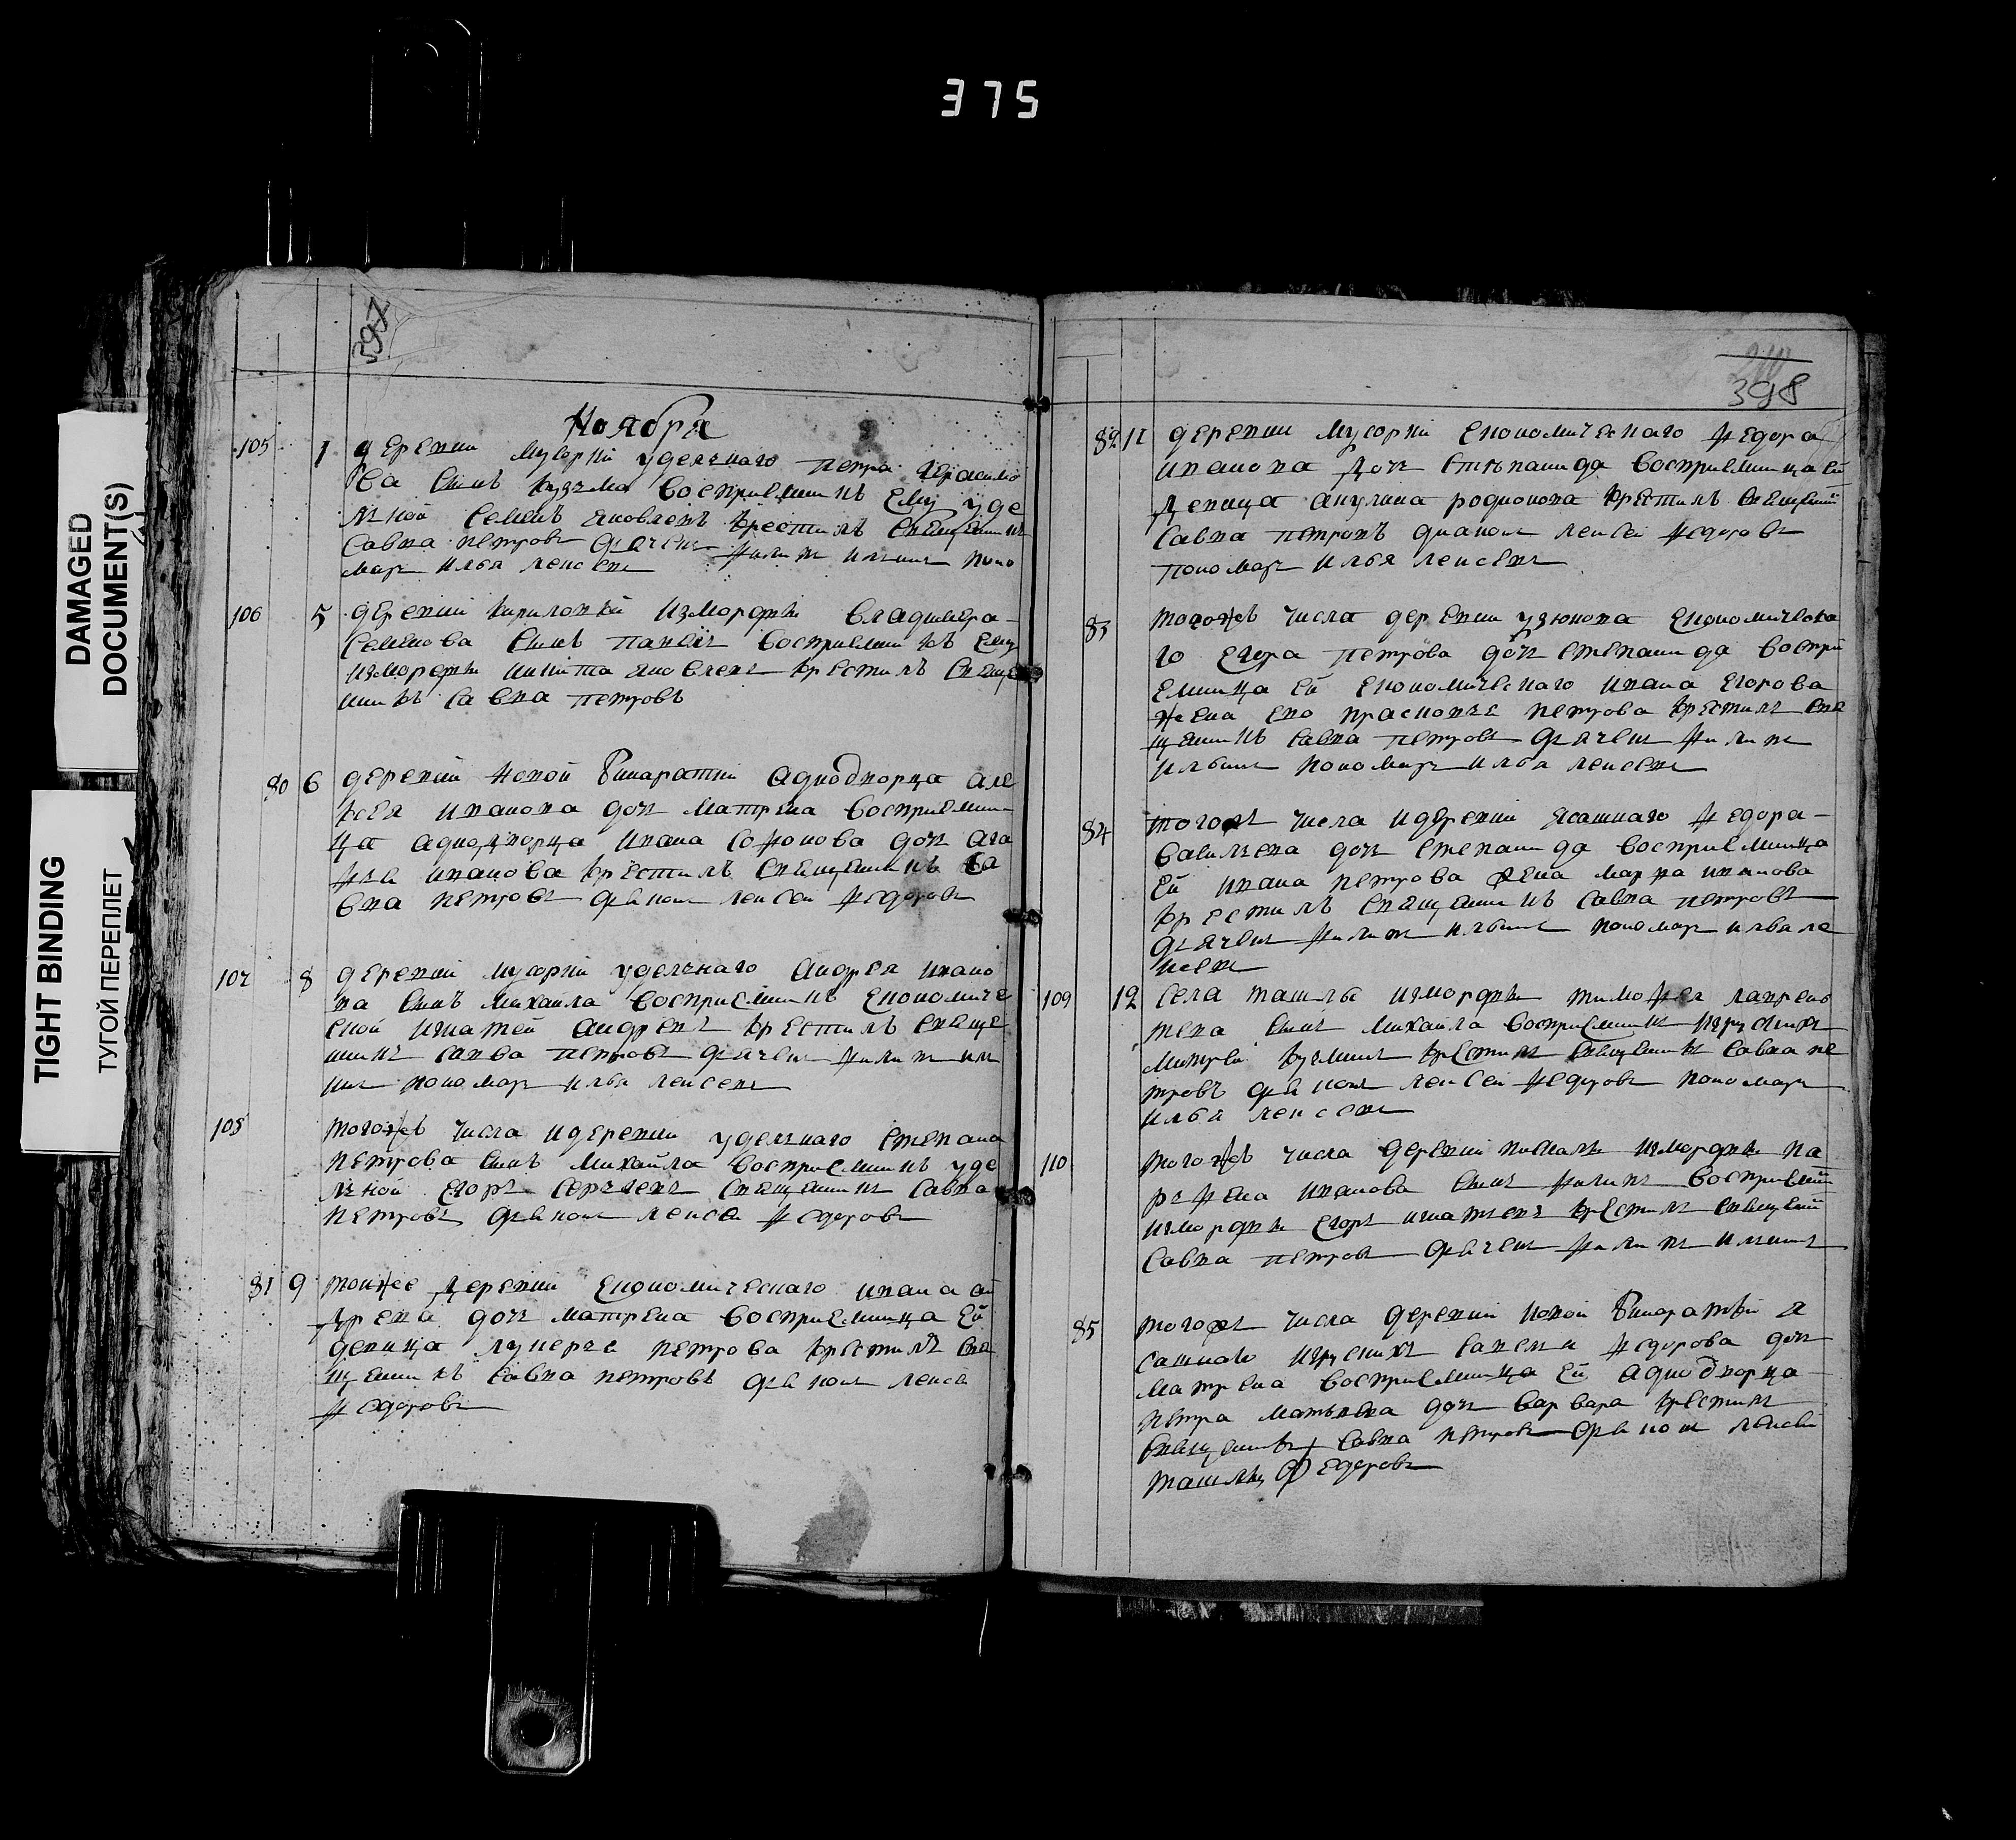 375
DAMAGED
DOCUMENT(S)
TIGHT BINDING
ТУГОЙ ПЕРЕПЛЕТ
397
Ноября
105 1 деревни Мусорки удельнаго Петра Герасимо
ва сынъ Кузьма восприемникъ ему уде
льной Семенъ Яковлевъ крестилъ священникъ
Савва Петровъ дьячекъ Филипъ Ильинъ поно
марь Илья Леисевъ
106 5 деревни Кириловки изморфжи Владимера
Семенова сынъ Павелъ восприемникъ ему
изморфжи Никита Яковлевъ крестилъ свяще
нникъ Савва Петровъ
80 6 деревни Новой Бинаратки аднодворца Але
ксея Иванова дочь Матрена восприемни
ца аднодворца Ивана Софонова дочь Ага
фья Иванова крестилъ священникъ Са
вва Петровъ дьякон Леисеи Федоровъ
107 8 деревни Мусорки удельнаго Андрея Ивано
ва сынъ Михаила восприемникъ економиче
ской Игнатей Андревъ крестилъ свяще
нникъ Савва Петровъ дьячекъ Филипъ Иль
инъ пономарь Илья Леисевъ
108 тогожъ числа и деревни удельнаго Степана
Петрова сынъ Михайла восприемникъ уде
льной Егоръ Сергеевъ священникъ Савва
Петровъ дьякон Леисеи Федоровъ
81 9 тоижее деревни економическаго Ивана Ан
древа дочь Матрена восприемница ей
девица Лукерья Петрова крестилъ свя
щенникъ Савва Петровъ дьякон Леисеи
Федоровъ
398
82 11 деревни Мусорки економическаго Федора
Иванова дочь Стѣпанида восприемница ей
девица Акулина Родионова крестилъ священни
Савва Петровъ диакон Леисеи Федоровъ
пономарь Илья Леисевъ
83 тогожъ числа деревни Узюкова економическа
го Егора Петрова дочь Степанида воспри
емница ей економическаго Ивана Егорова
жена ево Прасковья Петрова крестилъ свя
щенникъ Савва Петровъ дьячекъ Филипъ
Ильинъ пономарь Илья Леисевъ
84 тогожъ числа и деревни ясашнаго Федора
Васильева дочь Степанида восприемница
ей Ивана Петрова жена Марфа Иванова
крестилъ священникъ Савва Петровъ
дьячекъ Филипъ Ильинъ пономарь Илья Ле
исевъ
109 12 села Ташлы изморфжи Тимофея Лаврень
тева сынъ Михайла восприемникъ изруских
Митрей Кузминъ крестилъ священникъ Савва Пе
тровъ дьякон Леисеи Федоровъ пономарь
Илья Леисевъ
110 тогожъ числа деревни Пискалы изморфжи Па
рьфена Иванова сынъ Филипъ восприемни
изморфжи Егоръ Игнатьевъ крестилъ священни
Савва Петровъ дьячекъ Филипъ Ильинъ
85 тогожъ числа деревни Новой Бинаратки я
сашнаго изруских Савелья Федорова дочь
Матрена восприемница ей аднодворца
Петра Матьвева дочь Варвара крестилъ
священникъ Савва Петровъ дьякон Леисеи
Федоровъ